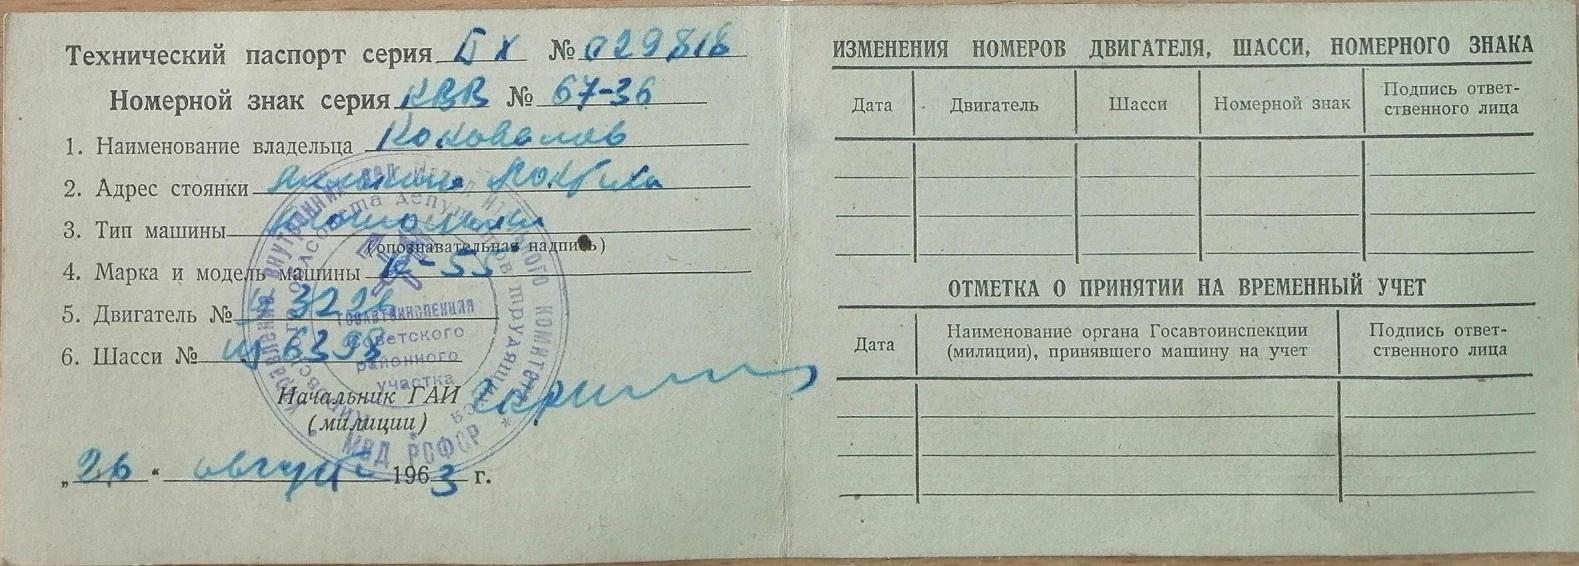 Технический паспорт серия БХ № 029818
Номерной знак серия КВВ № 67-36
1. Наименование владельца Коновалов
2. Адрес стоянки
3. Тип машины
(опознавательная надпись)
4. Марка и модель машины К-55
5. Двигатель № 3226
6. Шасси № 6398
Начальник ГАИ
(милиции)
„26“ август 1963 г.
УПРАВЛЕНИЕ ВНУТРЕННИХ ДЕЛ ИСПОЛНИТЕЛЬНОГО КОМИТЕТА
МВД РСФСР
Кировского облсовета депутатов трудящихся
ГОСАВТОИНСПЕКЦИЯ
Советского
районного
участка
ИЗМЕНЕНИЯ НОМЕРОВ ДВИГАТЕЛЯ, ШАССИ, НОМЕРНОГО ЗНАКА
Дата Двигатель Шасси Номерной знак Подпись ответ-
ственного лица
ОТМЕТКА О ПРИНЯТИИ НА ВРЕМЕННЫЙ УЧЕТ
Дата Наименование органа Госавтоинспекции
(милиции), принявшего машину на учет Подпись ответ-
ственного лица